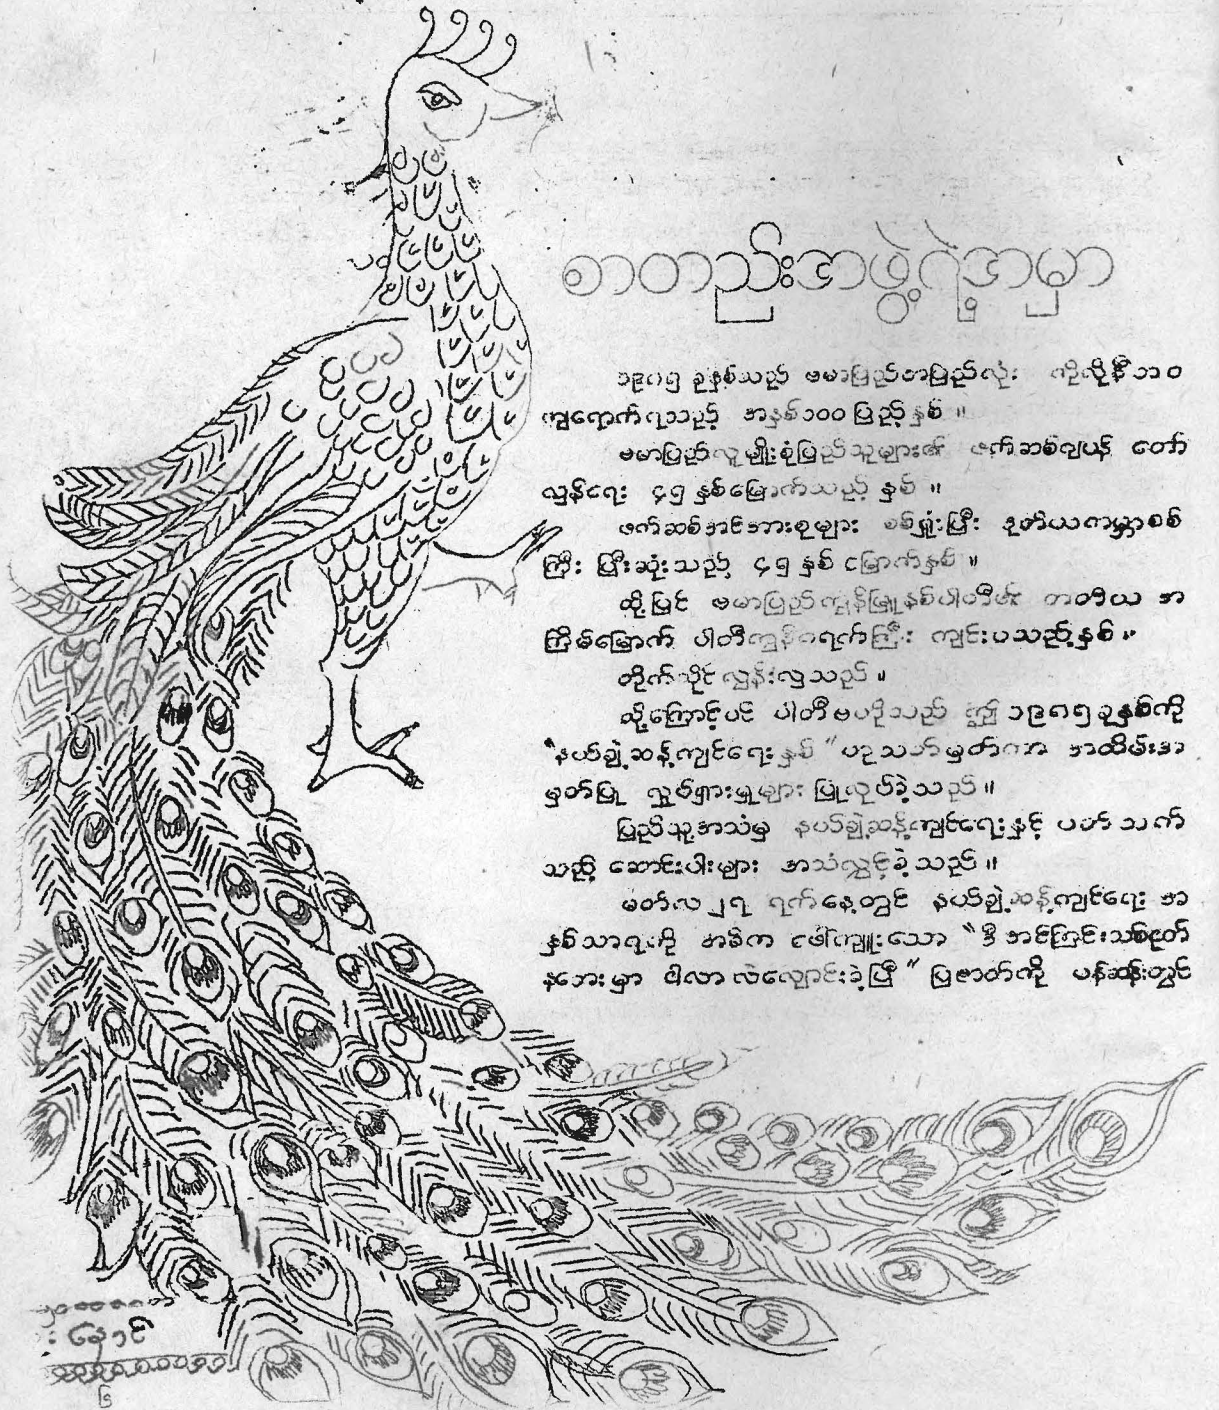 စာတည်းအဖွဲ့ရဲ့အာမှာ
၁၉၈၅ ခုနှစ်သည် ဗမာပြည်အပြည်လုံး ကိုလိုနီဘဝ
ကျရောက်ရသည့် အနှစ်၁၀၀ ပြည့်နှစ် ။
ဗမာပြည်လူမျိုးစုံပြည်သူများ၏ ဖက်ဆစ်ဂျပန် တော်
လှန်ရေး ၄၅ နှစ်မြောက်သည့် နှစ် ။
ဖက်ဆစ်အင်အားစုများ စစ်ရှုံးပြီး ဒုတိယကမ္ဘာစစ်
ကြီး ပြီးဆုံးသည့် ၄၅ နှစ် မြောက်နှစ် ။
ထို့ပြင် ဗမာပြည်ကွန်မြူနစ်ပါတီ၏ တတိယ အ
ကြိမ်မြောက် ပါတီကွန်ဂရက်ကြီး ကျင်းပသည့်နှစ် ။
တိုက်ဆိုင်လွန်းလှသည် ။
သို့ကြောင့်ပင် ပါတီဗဟိုသည် ဤ ၁၉၈၅ ခုနှစ်ကို
"နယ်ချဲ့ဆန့်ကျင်ရေးနှစ်" ဟုသတ်မှတ်ကာ အထိမ်းအ
မှတ်ပြု လှုပ်ရှားမှုများ ပြုလုပ်ခဲ့သည် ။
ပြည်သူ့အသံမှ နယ်ချဲ့ဆန့်ကျင်ရေးနှင့် ပတ်သက်
သည့် ဆောင်းပါးများ အသံလွှင့်ခဲ့သည် ။
မတ်လ ၂၇ ရက်နေ့တွင် နယ်ချဲ့ဆန့်ကျင်ရေး အ
နှစ်သာရကို အဓိက ဖေါ်ကျူးသော "ဒီအင်ကြင်းသစ်ငုတ်
နဘေးမှာ ငါလာလဲလျောင်းခဲ့ပြီ" ပြဇာတ်ကို ပန်ဆန်းတွင်
နောင်